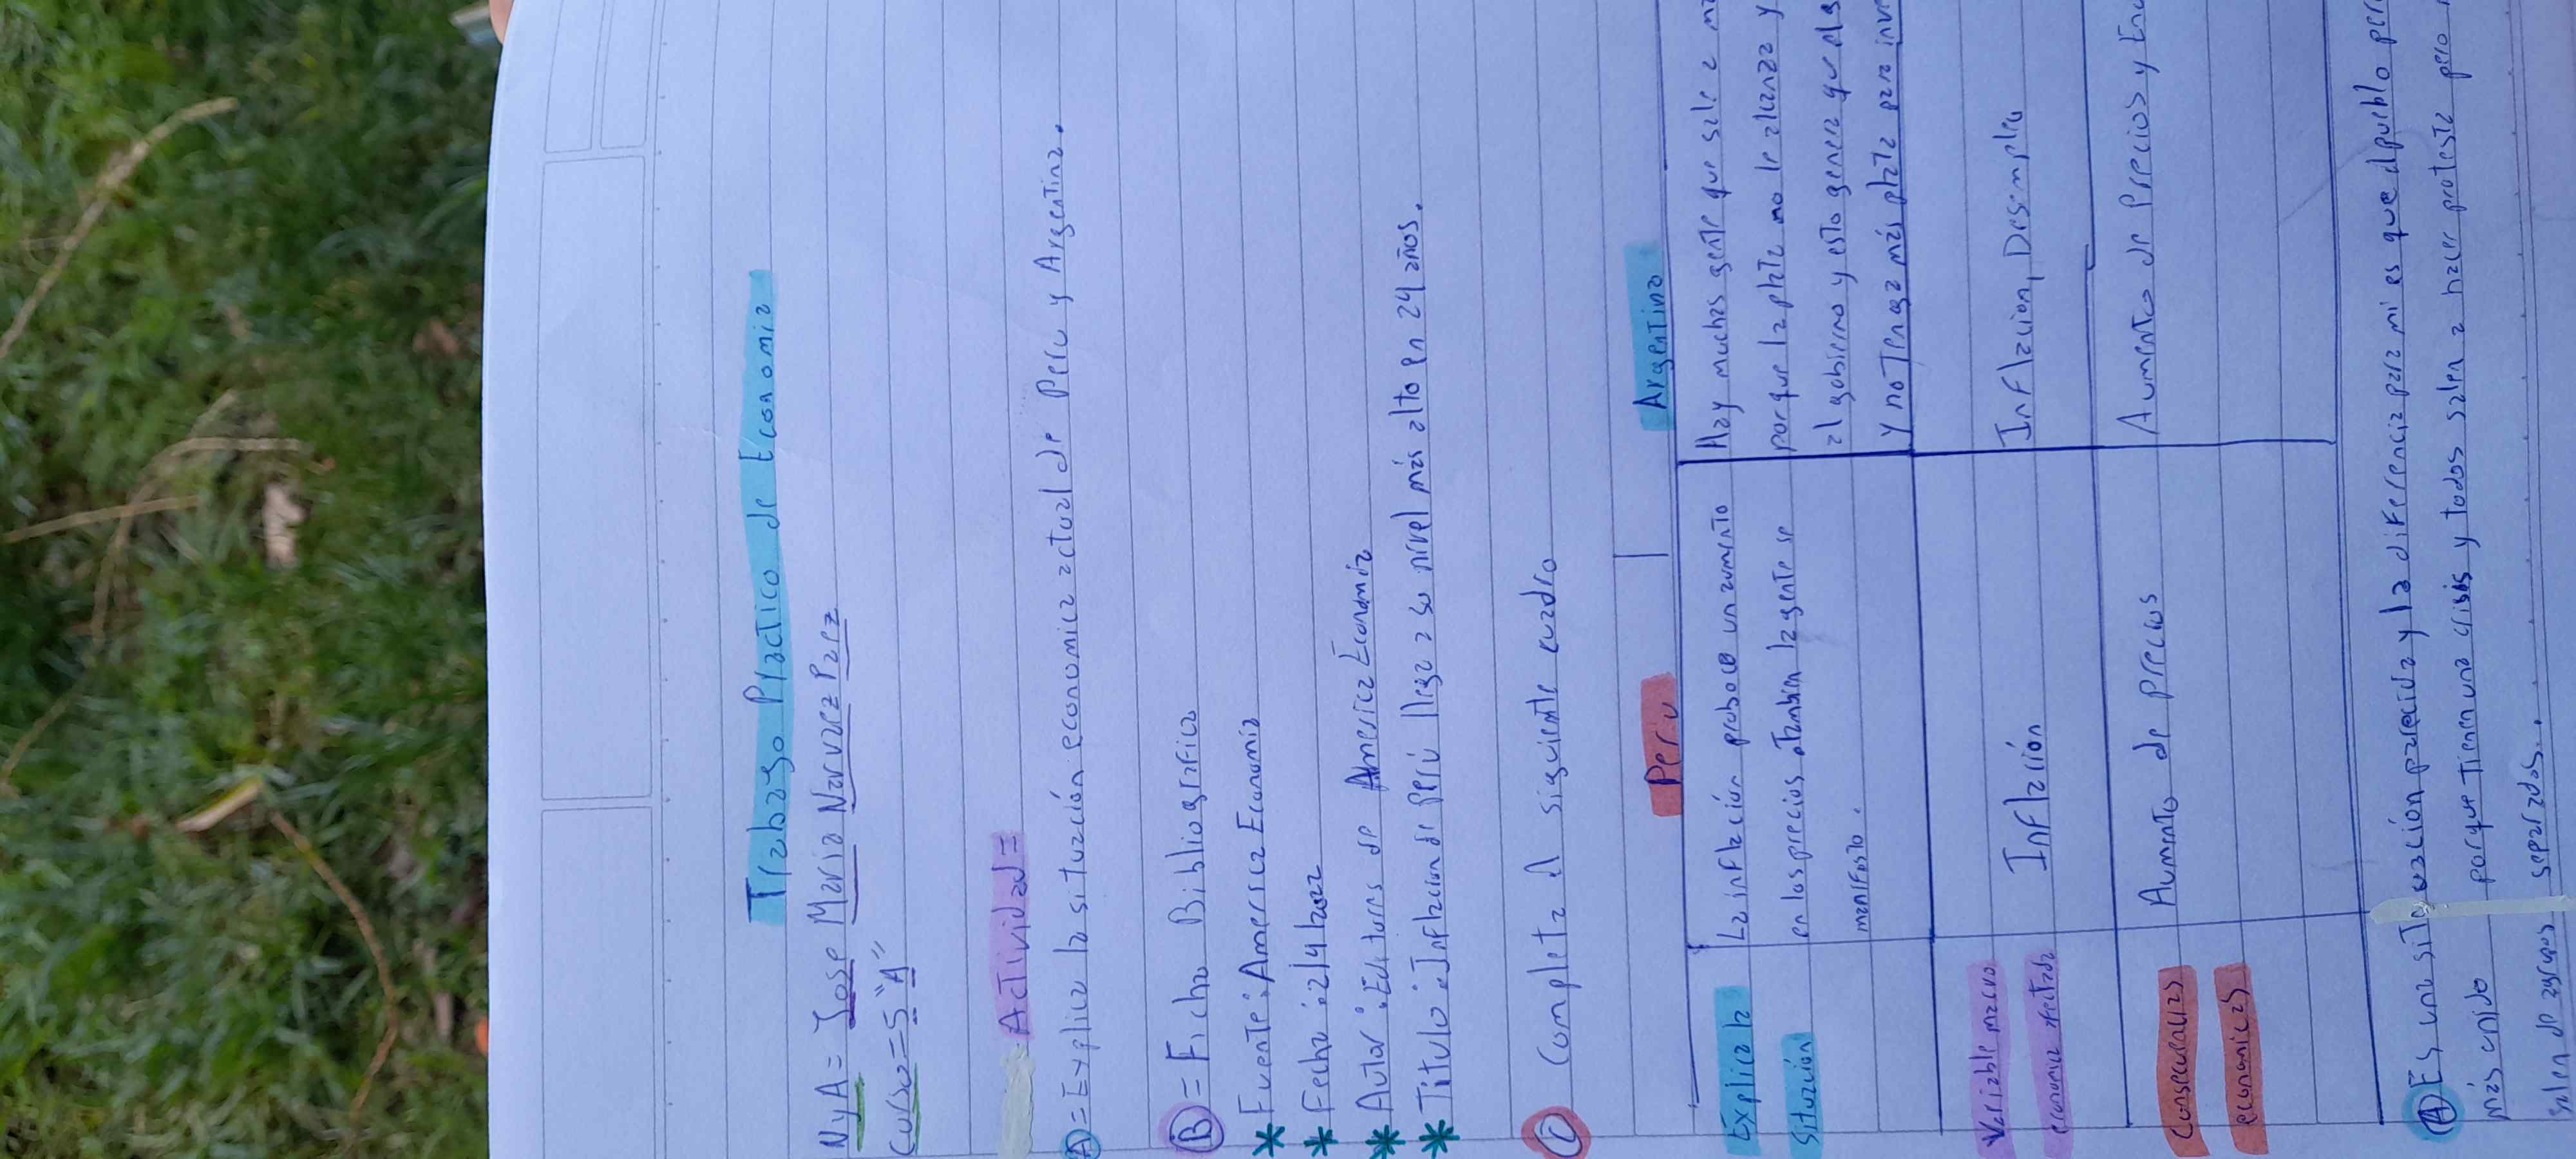 Trabago Practico de Economia
NyA= Jose Maria Narvaez Paez
Curso=5"A"
Actividad=
A)=Explica la situación economica actual de Peru y Argentina.
B)=Ficha Bibliografica
*Fuente:America Economia
*Fecha:2/4/2022
*Autor:Editores de America Economia
*Titulo:Inflacion de Perú llega a su nivel más alto en 24 años.
C) Completa el siguiente cuadro
Peru Argentina
Explica la
Situación
La inflación probaco un aumento
en los precios también la gente se
manifesto.
Hay muchas gente que sale a
porque la plata no le alcanza y
al gobierno y esto genera que
y no Tenga más plata para
Variable macro
economica afectada
Inflación
Inflacion, Desempleo
Consecuencias
economicas
Aumento de precios
Aumento de Precios y
A) Es una situación parecida y la diferencia para mi es que el pueblo
más unido porque tienen una crisis y todos salen a hacer protesta pero
salen de agrupos separados..